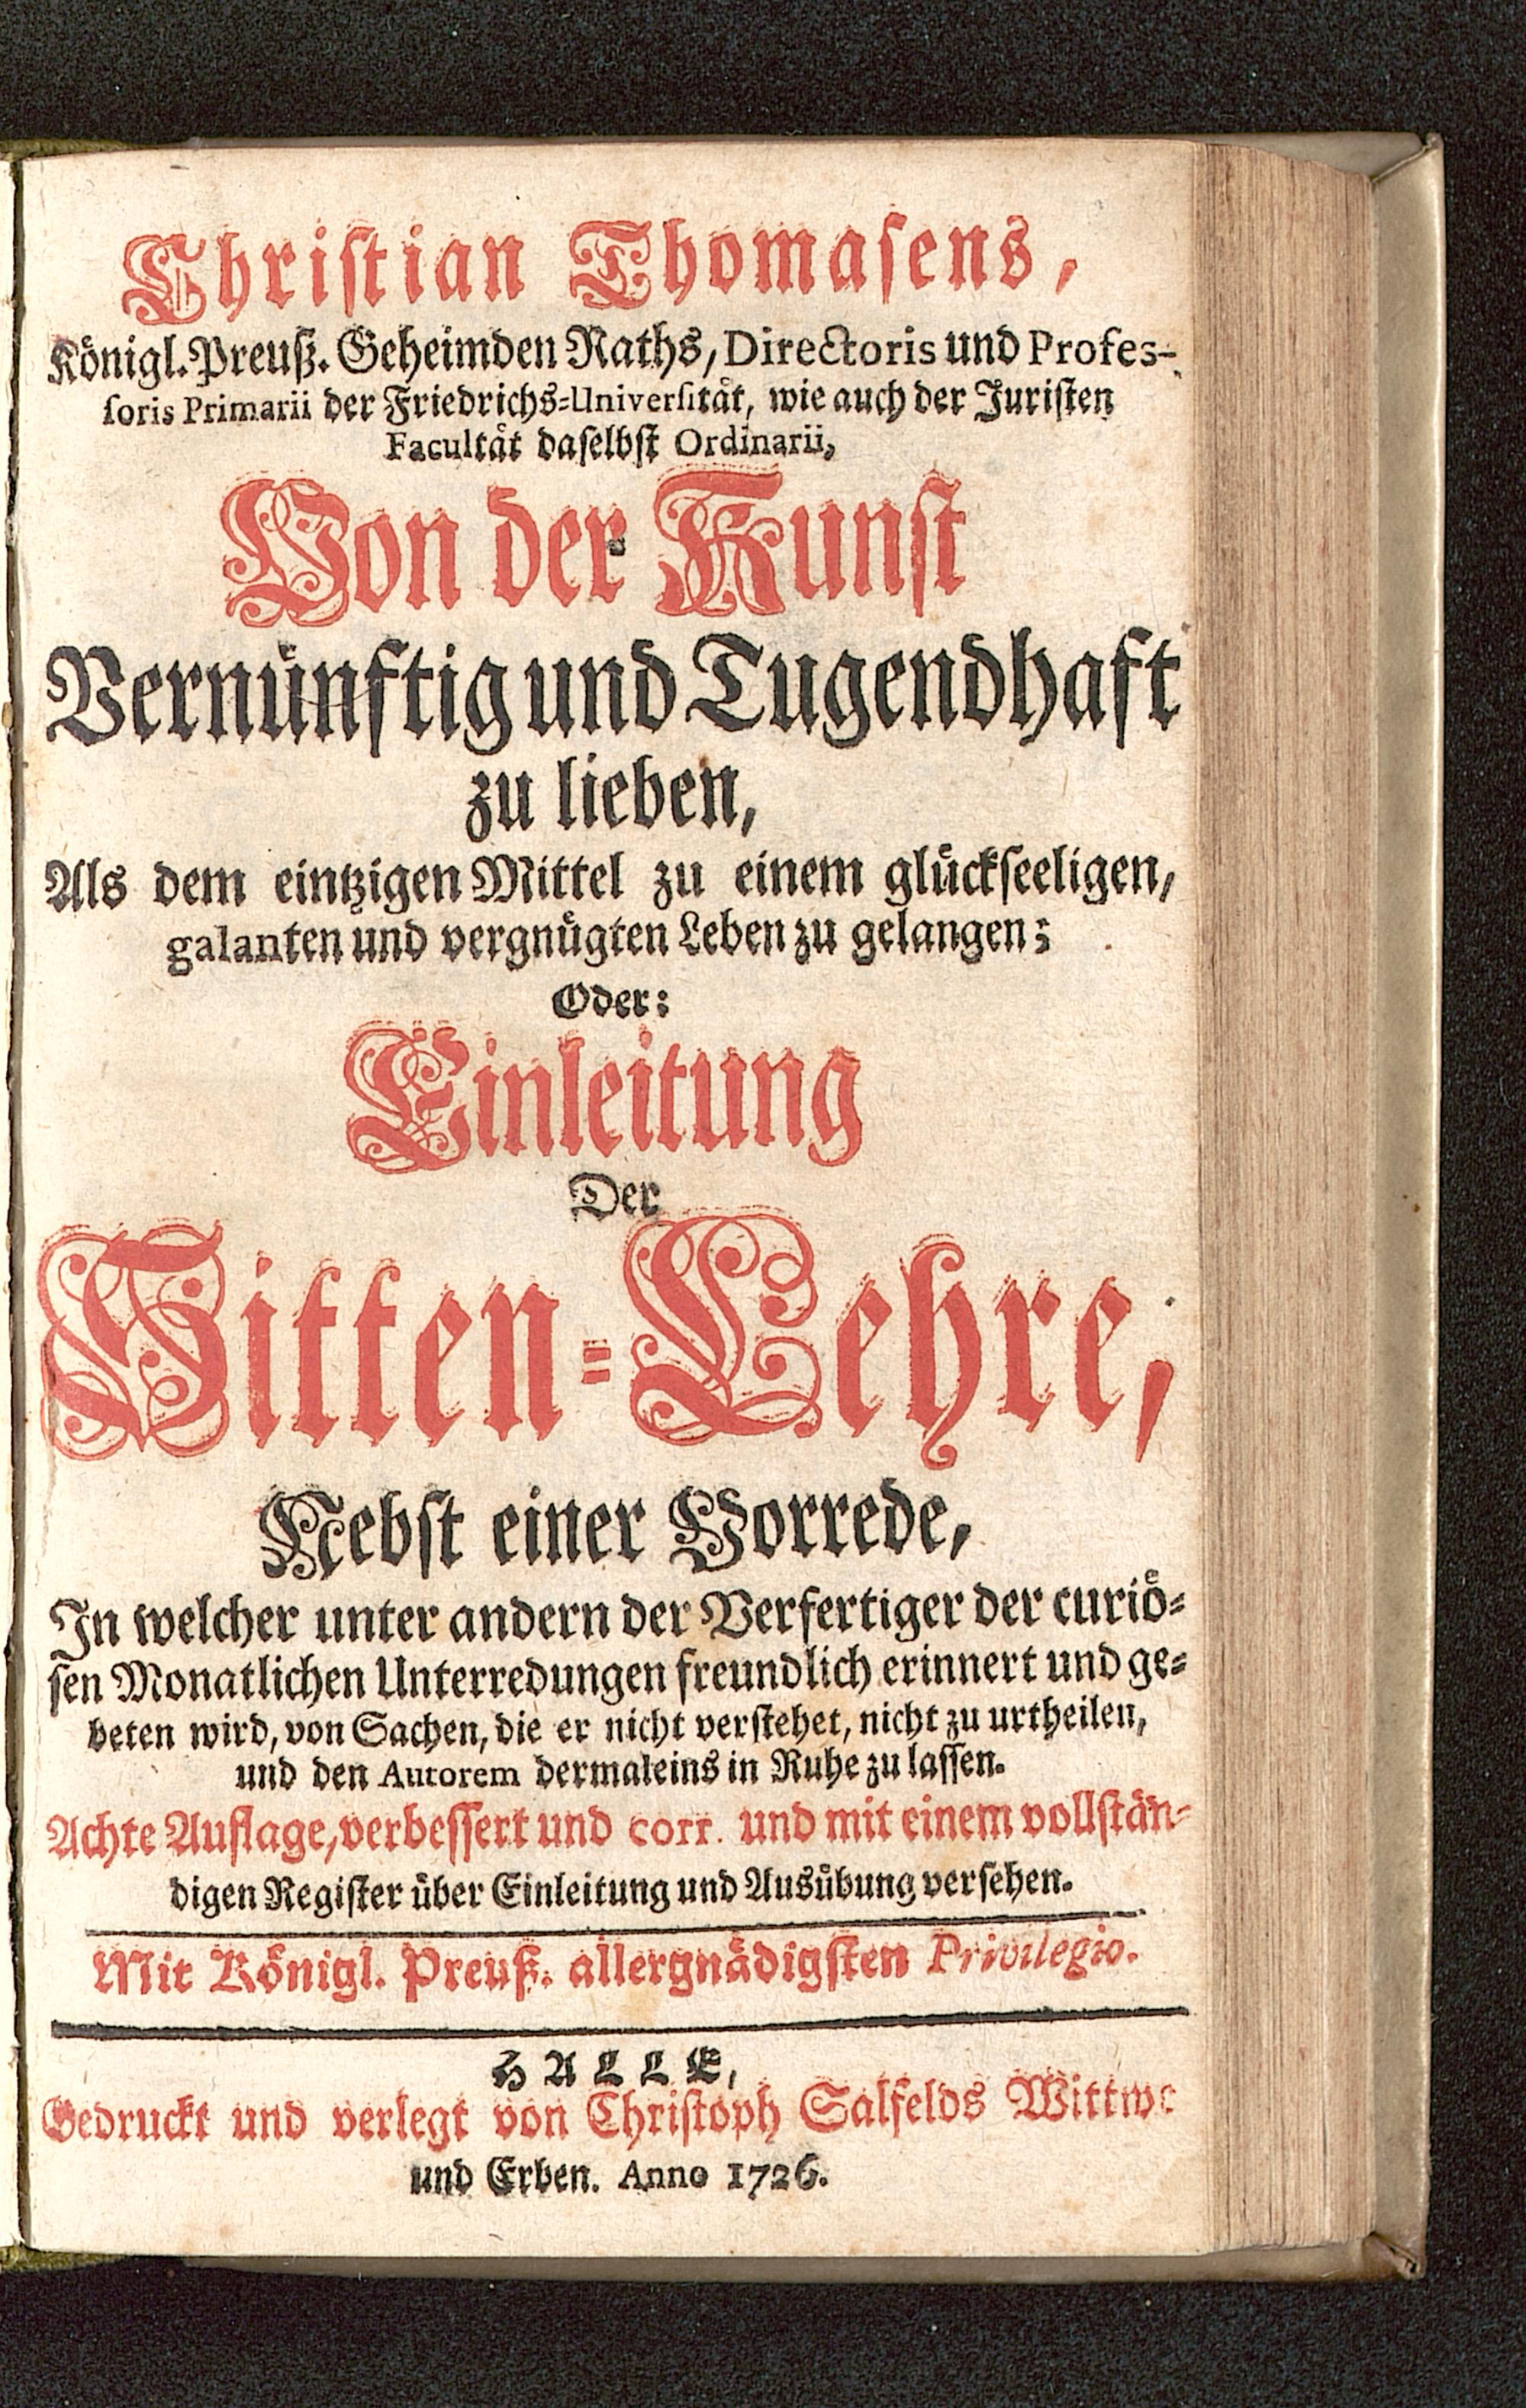 Christian Thomasens,
Königl. Preuß. Geheimden Raths, Directoris und Profes-
soris Primarii der Friedrichs-Universität, wie auch der Juristen
Facultät daselbst Ordinarii,
Von der Kunst
Vernünftig und Tugendhaft
zu lieben,
Als dem eintzigen Mittel zu einem glückseeligen,
galanten und vergnügten Leben zu gelangen;
Oder:
Einleitung
Der
Sitten-Lehre,
Nebst einer Vorrede,
In welcher unter andern der Verfertiger der curiö-
sen Monatlichen Unterredungen freundlich erinnert und ge-
beten wird, von Sachen, die er nicht verstehet, nicht zu urtheilen,
und den Autorem dermaleins in Ruhe zu lassen.
Achte Auflage, verbessert und corr. und mit einem vollstän-
digen Register über Einleitung und Ausübung versehen.
Mit Königl. Preuß. allergnädigsten Privilegio.
HALLE,
Gedruckt und verlegt von Christoph Salfelds Wittwe
und Erben. Anno 1726.